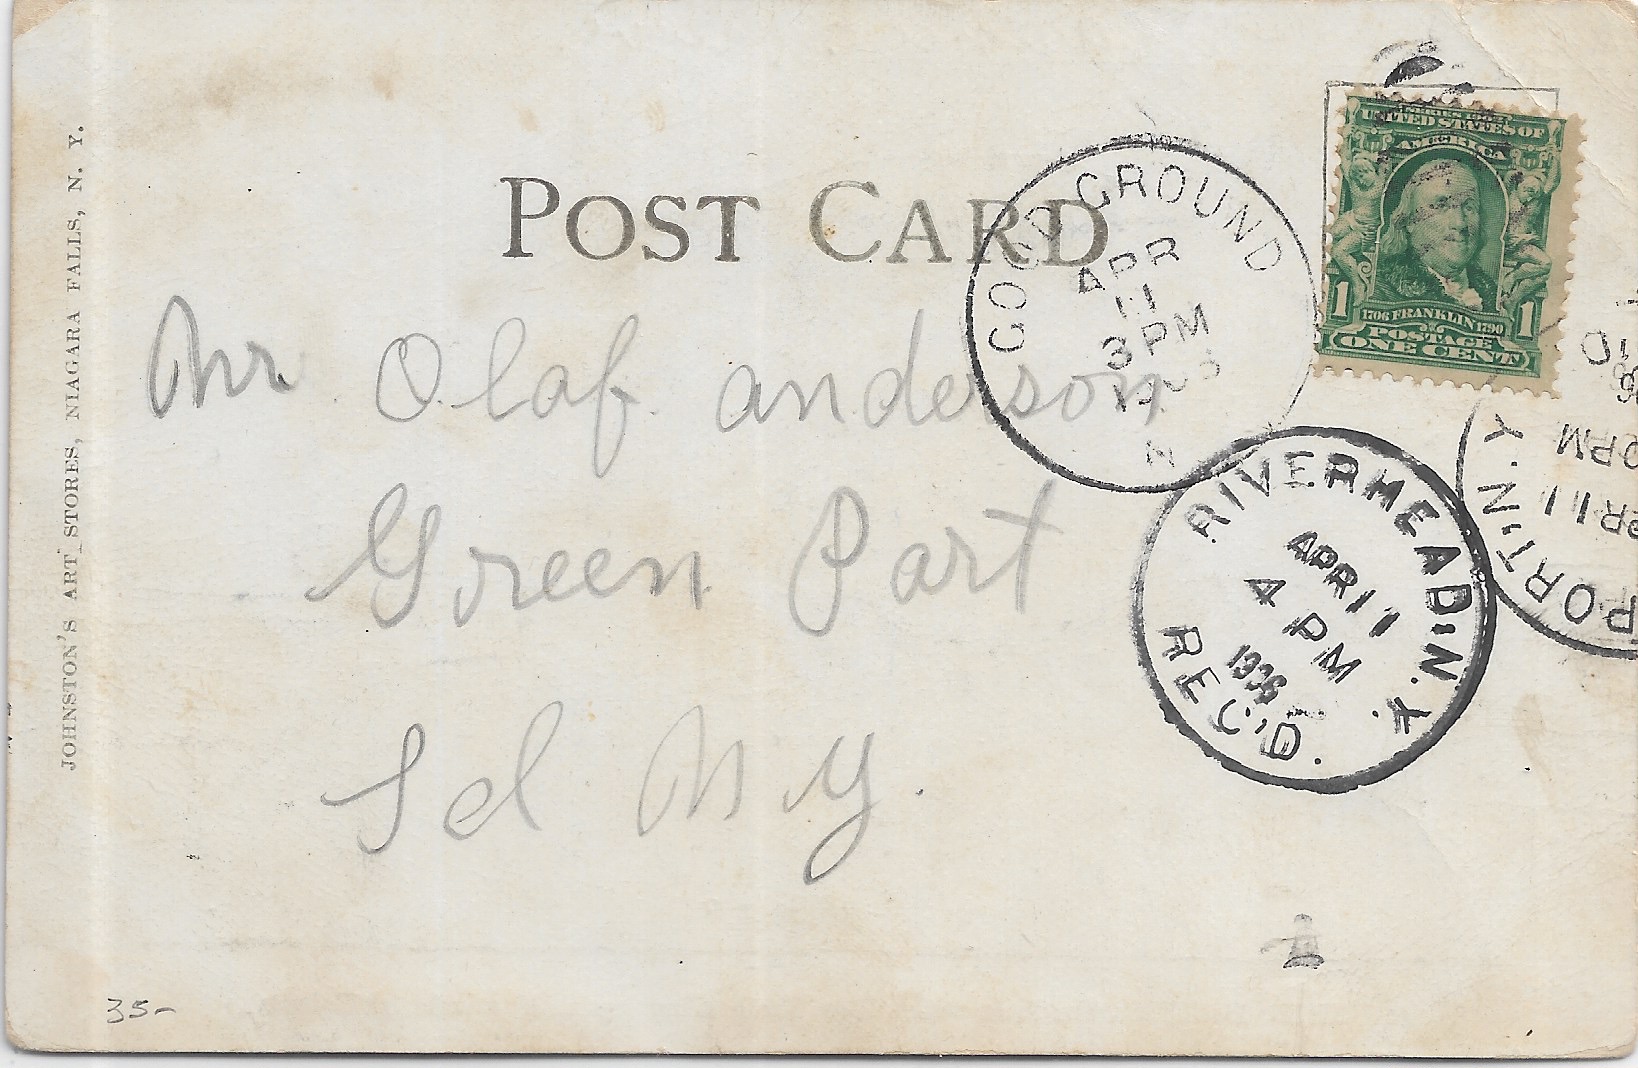 JOHNSTON'S ART STORES, NIAGARA FALLS, N. Y.
POST CARD
GOOD GROUND
APR
11
3 PM
N
SERIES 1902
UNITED STATES OF
AMERICA
1 1
1706 FRANKLIN 1790
POSTAGE
ONE CENT
Mr Olaf anderson
Green Part
Sd N Y.
RIVERHEAD, N.Y.
APR 11
4 PM
1906
REC'D.
PORT, N.Y.
PR 11
PM
35-